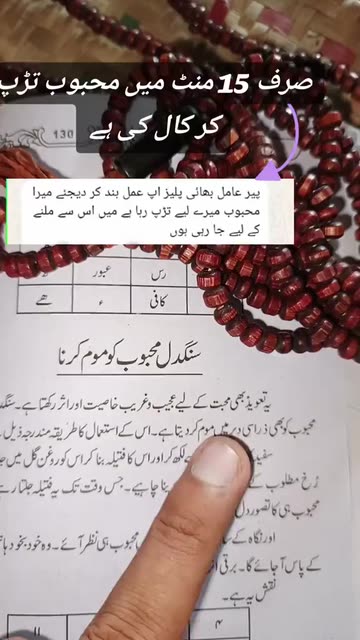 صرف 15 منٹ میں محبوب تڑپ
کر کال کی ہے
130
پیر عامل بھائی پلیز اپ عمل بند کر دیجئے میرا
محبوب میرے لیے تڑپ رہا ہے میں اس سے ملنے
کے لیے جا رہی ہوں
رس عبور
کافی ء ھے
سنگدل محبوب کو موم کرنا
یہ تعویذ بھی محبت کے لیے عجیب و غریب خاصیت اور اثر رکھتا ہے۔ سنگد
محبوب کو بھی ذرا سی دیر میں موم کر دیتا ہے۔ اس کے استعمال کا طریقہ مندرجہ ذیل
سفید لکھ کر اور اس کا فتیلہ بنا کر اس کو روغن گل میں
رُخ مطلوب کے نا چاہیے۔ جس وقت تک یہ فتیلہ جلتا ر
محبوب ہی کا تصور دل
اور نگاہ کے سا محبوب ہی نظر آئے۔ وہ خود بخود
کے پاس آ جائے گا۔
نقش یہ ہے۔
۴